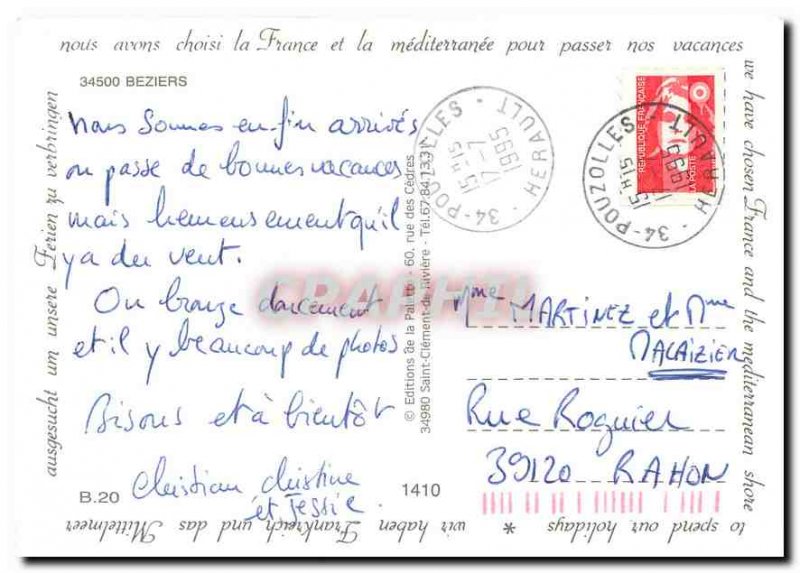 nous avons choisi la France et la méditerranée pour passer nos vacances
we have chosen France and the mediterranean shore
to spend our holidays * wir haben Frankreich und das Mittelmeer
ausgesucht um unsere Ferien zu verbringen
34500 BEZIERS
nous sommes en-fin arrivés
on passe de bonnes vacances
mais hemensement qu'il
y a du vent.
On bronze doucement
et il y beaucoup de photos
Bisous et à bientôt
Christian Christine
et Jessie.
B.20
1410
© Editions de la Palette - 60, rue des Cèdres
34980 Saint-Clément-de-Rivière - Tél. 67.84.13.31
34-POUZOLLES - HERAULT
15H15
17-7
1995
REPUBLIQUE FRANÇAISE
LA POSTE
34-POUZOLLES - HERAULT
15H15
1995
CPAPHIL
Mme MARTINEZ et Mme
MALAIZIER
Rue Roguier
39120 RAHON